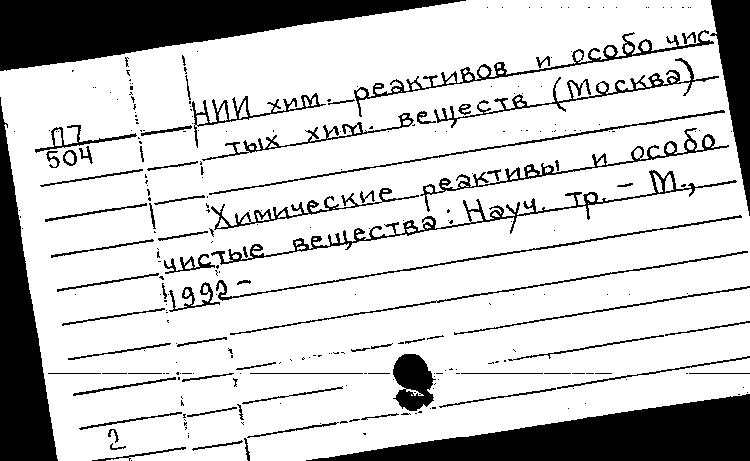 П7
504
НИИ хим. реактивов и особо чис-
тых хим. веществ (Москва).
Химические реактивы и особо
чистые вещества: Науч. тр. – М.,
1992 –
2